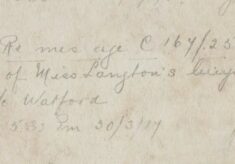 Re mes age C 164/25
of Miss Langton's
Watford
5.35 pm 30/3/17